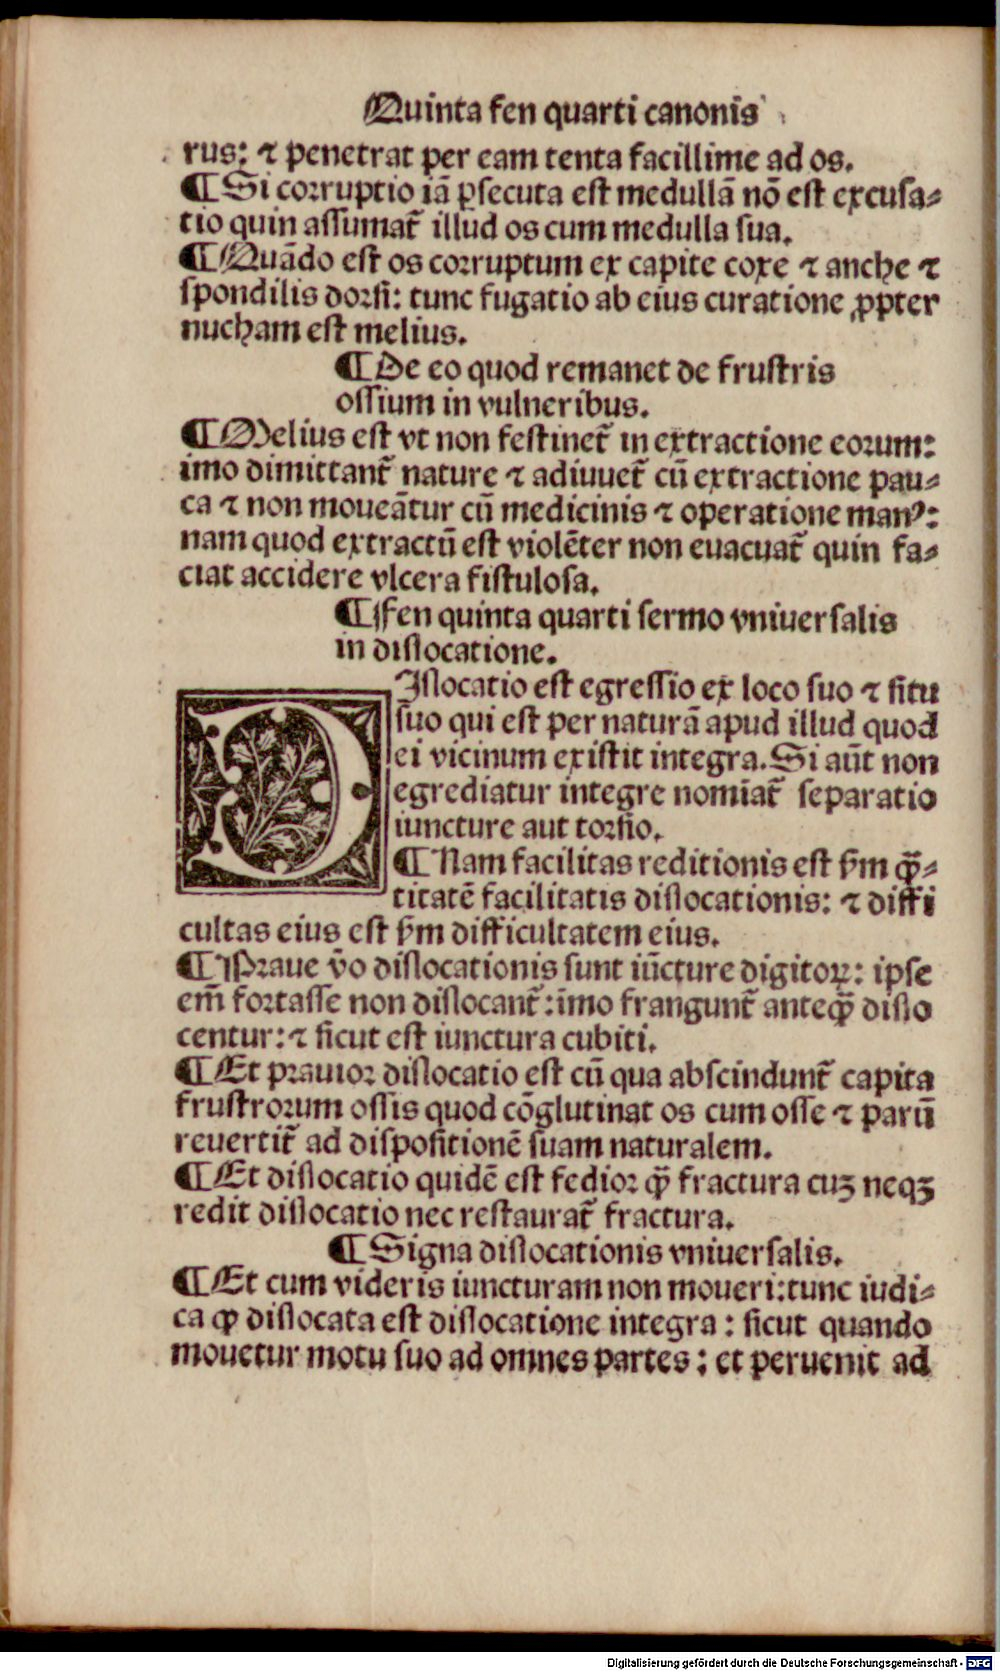 Quinta fen quarti canonis
rus: ⁊ penetrat per eam tenta facillime ad os.
¶ Si corruptio iā ꝑsecuta est medullā nō est excusa-
tio quin assumat̄ illud os cum medulla sua.
¶ Quādo est os corruptum ex capite coxe ⁊ anche ⁊
spondilis dorsi: tunc fugatio ab eius curatione ꝓpter
nucham est melius.
¶ De eo quod remanet de frustris
ossium in vulneribus.
¶ Melius est vt non festinet̄ in extractione eorum:
imo dimittant̄ nature ⁊ adiuuet̄ cū extractione pau-
ca ⁊ non moueātur cū medicinis ⁊ operatione manꝰ:
nam quod extractū est violēter non euacuat̄ quin fa-
ciat accidere vlcera fistulosa.
¶ Fen quinta quarti sermo vniuersalis
in dislocatione.
DIslocatio est egressio ex loco suo ⁊ situ
suo qui est per naturā apud illud quod
ei vicinum existit integra. Si aūt non
egrediatur integre nomīat̄ separatio
iuncture aut torsio.
¶ Nam facilitas reditionis est ẜm qͣ̄-
titatē facilitatis dislocationis: ⁊ diffi
cultas eius est ẜm difficultatem eius.
¶ Praue v̄o dislocationis sunt iūcture digitoꝝ: ipse
em̄ fortasse non dislocant̄: īmo frangunt̄ anteqͣ̄ dislo
centur: ⁊ sicut est iunctura cubiti.
¶ Et prauior dislocatio est cū qua abscindunt̄ capita
frustrorum ossis quod cōglutinat os cum osse ⁊ parū
reuertit̄ ad dispositionē suam naturalem.
¶ Et dislocatio quidē est fedior qͣ̄ fractura cuꝫ neqꝫ
redit dislocatio nec restaurat̄ fractura.
¶ Signa dislocationis vniuersalis.
¶ Et cum videris iuncturam non moueri: tunc iudi-
ca ꝙ dislocata est dislocatione integra: sicut quando
mouetur motu suo ad omnes partes: et peruenit ad
Digitalisierung gefördert durch die Deutsche Forschungsgemeinschaft - DFG